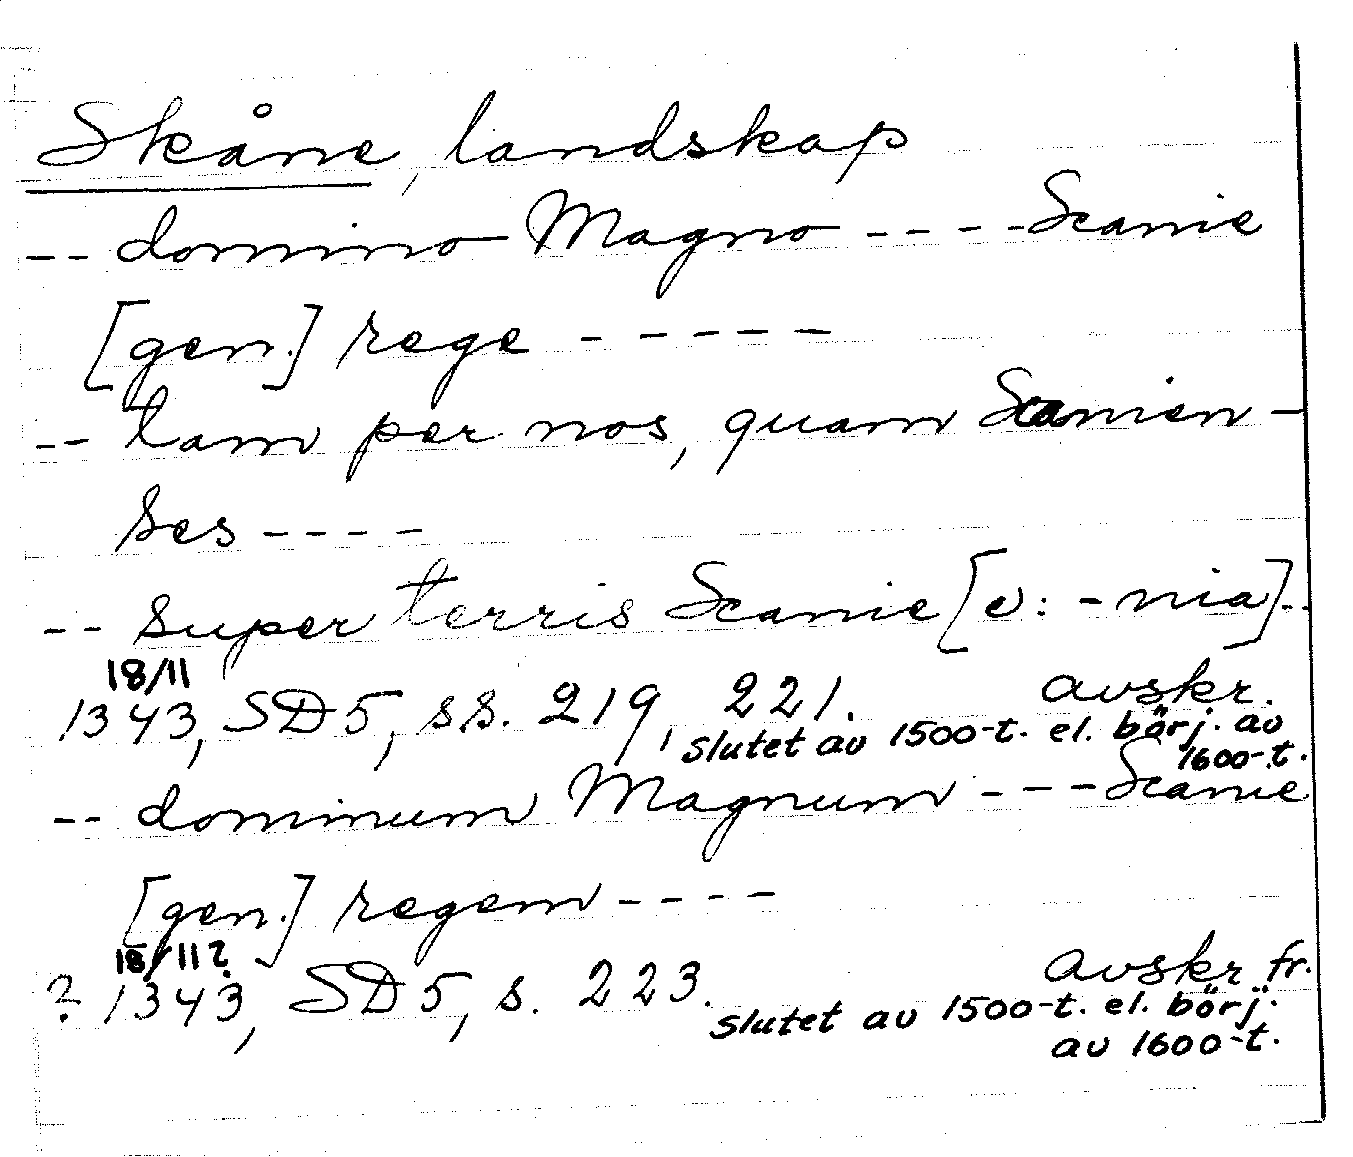 Skåne, landskap
-- domino Magno ---- Scanie
[gen.] rege -----
-- tam per nos, quam Scanien-
ses ----
-- super terris Scanie [v: -nia]--
18/11
1343, SD5, ss. 219, 221. avskr.
slutet av 1500-t. el. börj. av
1600-t.
-- dominum Magnum --- Scanie
[gen.] regem ----
18/11?
? 1343, SD5, s. 223. avskr. fr.
slutet av 1500-t. el. börj.
av 1600-t.